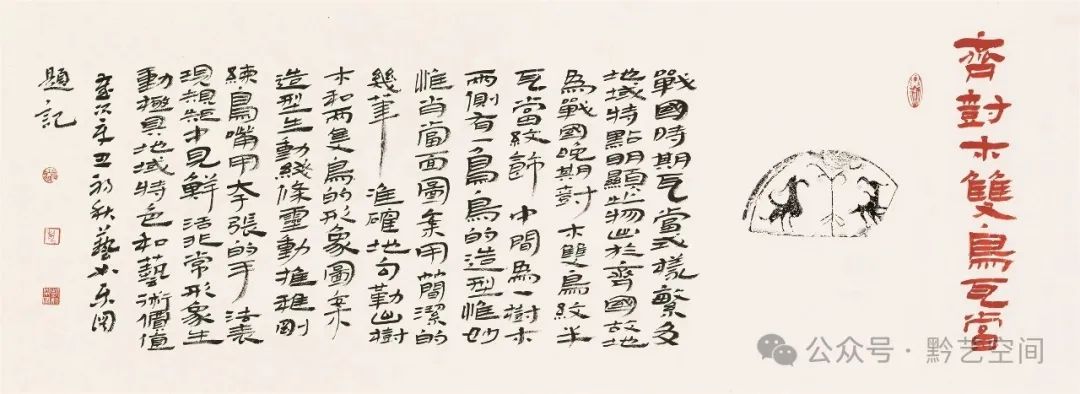 齊對木雙鳥瓦當
戰國時期瓦當式樣繁多
地域特點明顯此物出於齊國故地
為戰國晚期對木雙鳥紋半
瓦當紋飾中間為一樹木
兩側有一鳥鳥的造型惟妙
惟肖當面圖案用簡潔的
幾筆准確地勾勒出樹
木和兩隻鳥的形象圖案
造型生動綫條靈動剛
練鳥嘴用張的手法表
現中見鮮活非常形象生
動極具地域特色和藝術價值
歲次辛丑初秋藝
題記
公众号·黔艺空间